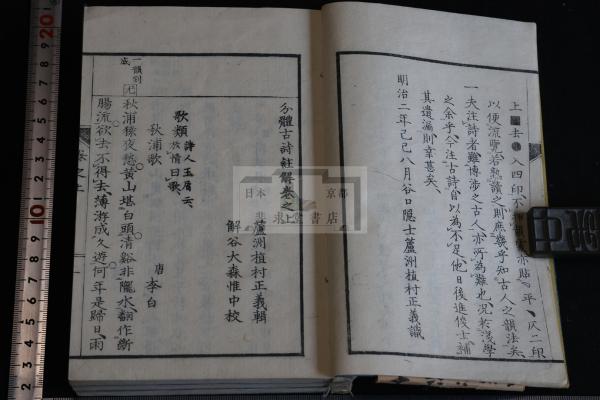 上 去 入四印不
平 仄二印
以便流覽若熟讀之則庶幾乎知古人之韻法矣
一夫注詩者雖博涉之古人亦所為難也况於淺學
之余乎今注古詩自以為不足他日後進俊士補
其遺漏則幸甚矣
明治二年己巳八月谷口隱士蘆洲植村正義識
分體古詩註解卷之上
蘆洲植村正義輯
解谷大森惟中校
歌類 詩人玉屑云放情曰歌
秋浦歌
唐 李白
一韻到
成
秋浦猿夜愁黃山堪白頭清谿非隴水翻作斷
腸流欲去不得去薄游成久遊何年是歸日雨
日本 京都
求堂書店